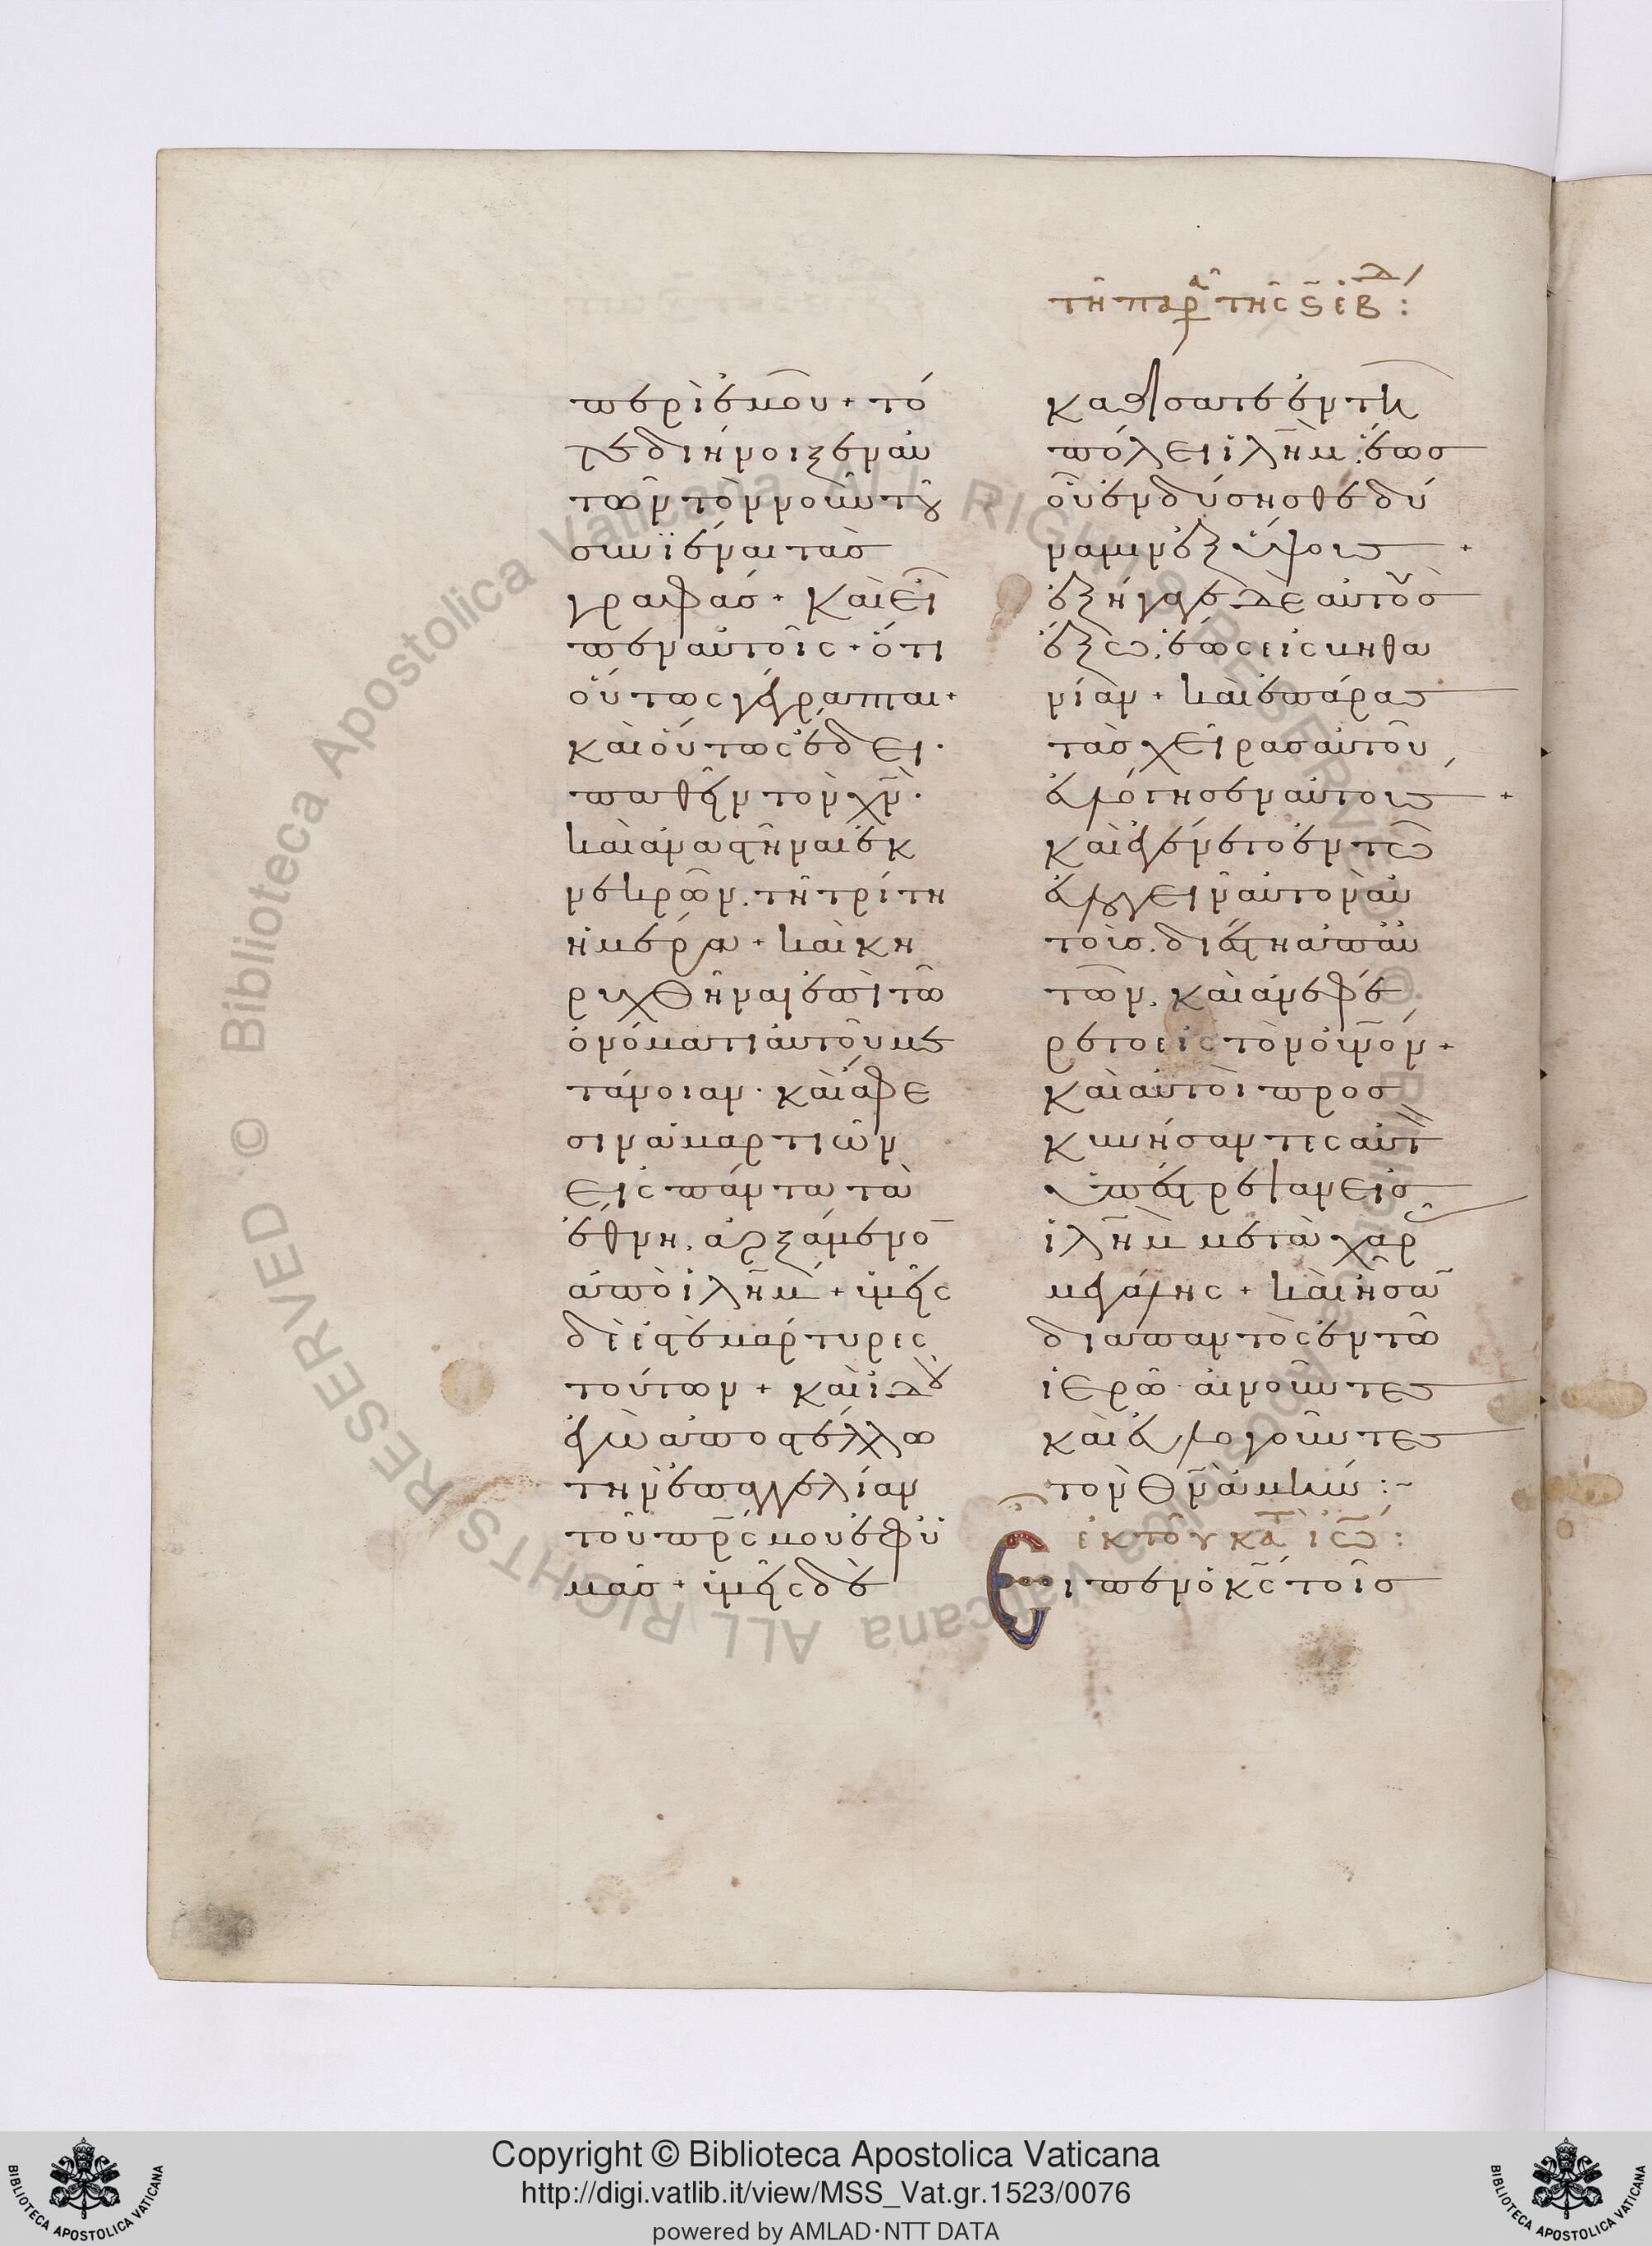 τῆ παρ̑α τῆς ϛ̄ ἑβδ/ :
περὶ ἐμοῦ + τό
τε διήνοιξεν αὐ
τῶν τὸν νοῦν τοῦ
συνϊέναι τὰσ
γραφάσ + Καὶ εἶ
πεν αὐτοῖς + ὅτι
οὕτως γέγραπται +
καὶ οὕτως ἔδει ·
παθεῖν τὸν χ̅ν̅ ·
καὶ ἀναστῆναι ἐκ
νεκρῶν . τῆ τρίτη
ἡμέρα + καὶ κη
ρυχθῆναι ἐπὶ τῶ
ὀνόματι αὐτοῦ με
τάνοιαν · καὶ ἄφε
σιν ἁμαρτιῶν
εἰς πάντα τὰ
ἔθνη . ἀρξάμενο̅
ἀπὸ ἰλ̅η̅μ̅ + ὑμεῖς
δὲ ἐστὲ μάρτυρες
τούτων + καὶ ἰδοὺ
ἐγὼ ἀποστέλλω
τὴν ἐπαγγελίαν
τοῦ π̅ρ̅ς̅ μου ἐφ ὑ
μᾶσ + ὑμεῖς δὲ
καθίσατε ἐν τῆ
πόλει ἰλ̅η̅μ̅ . ἕωσ
οὗ ἐνδύσησθε δύ
ναμιν ἐξ ὕψους +
ἐξήγαγε δὲ αὐτοὺσ
ἔξω . ἕως εἰς βηθα
νίαν + καὶ ἐπάρας
τὰσ χεῖρασ αὐτοῦ
εὐλόγησεν αὐτους +
καὶ ἐγένετο ἐν τῶ
εὐλογεῖν αὐτὸν αὐ
τοὺσ . διέστη ἀπ αὐ
τῶν . καὶ ἀνεφέ
ρετο εἰς τὸν οὐ̅νο̅ν +
καὶ αὐτοὶ προσ
κυνήσαντες αὐτ
ὑπέστρεψαν εἰσ
ἰλ̅η̅μ̅ μετὰ χαρᾶς
μεγάλης + καὶ ἦσα̅
διαπαντὸς ἐν τῶ
ἱερῶ αἰνοῦντες
καὶ εὐλογοῦντες
τὸν θ̅ν̅ ἀμήν :~
ἐκ τοῦ κατ ἰω̅ :
Εἶπεν ὁ κ̅ς̅ τοῖσ
Copyright © Biblioteca Apostolica Vaticana
http://digi.vatlib.it/view/MSS_Vat.gr.1523/0076
powered by AMLAD·NTT DATA